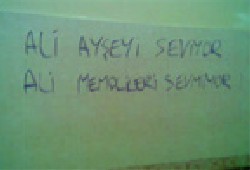 ALİ AYŞEYİ SEVİYOR
ALİ MEMELİLERİ SEVMİYOR